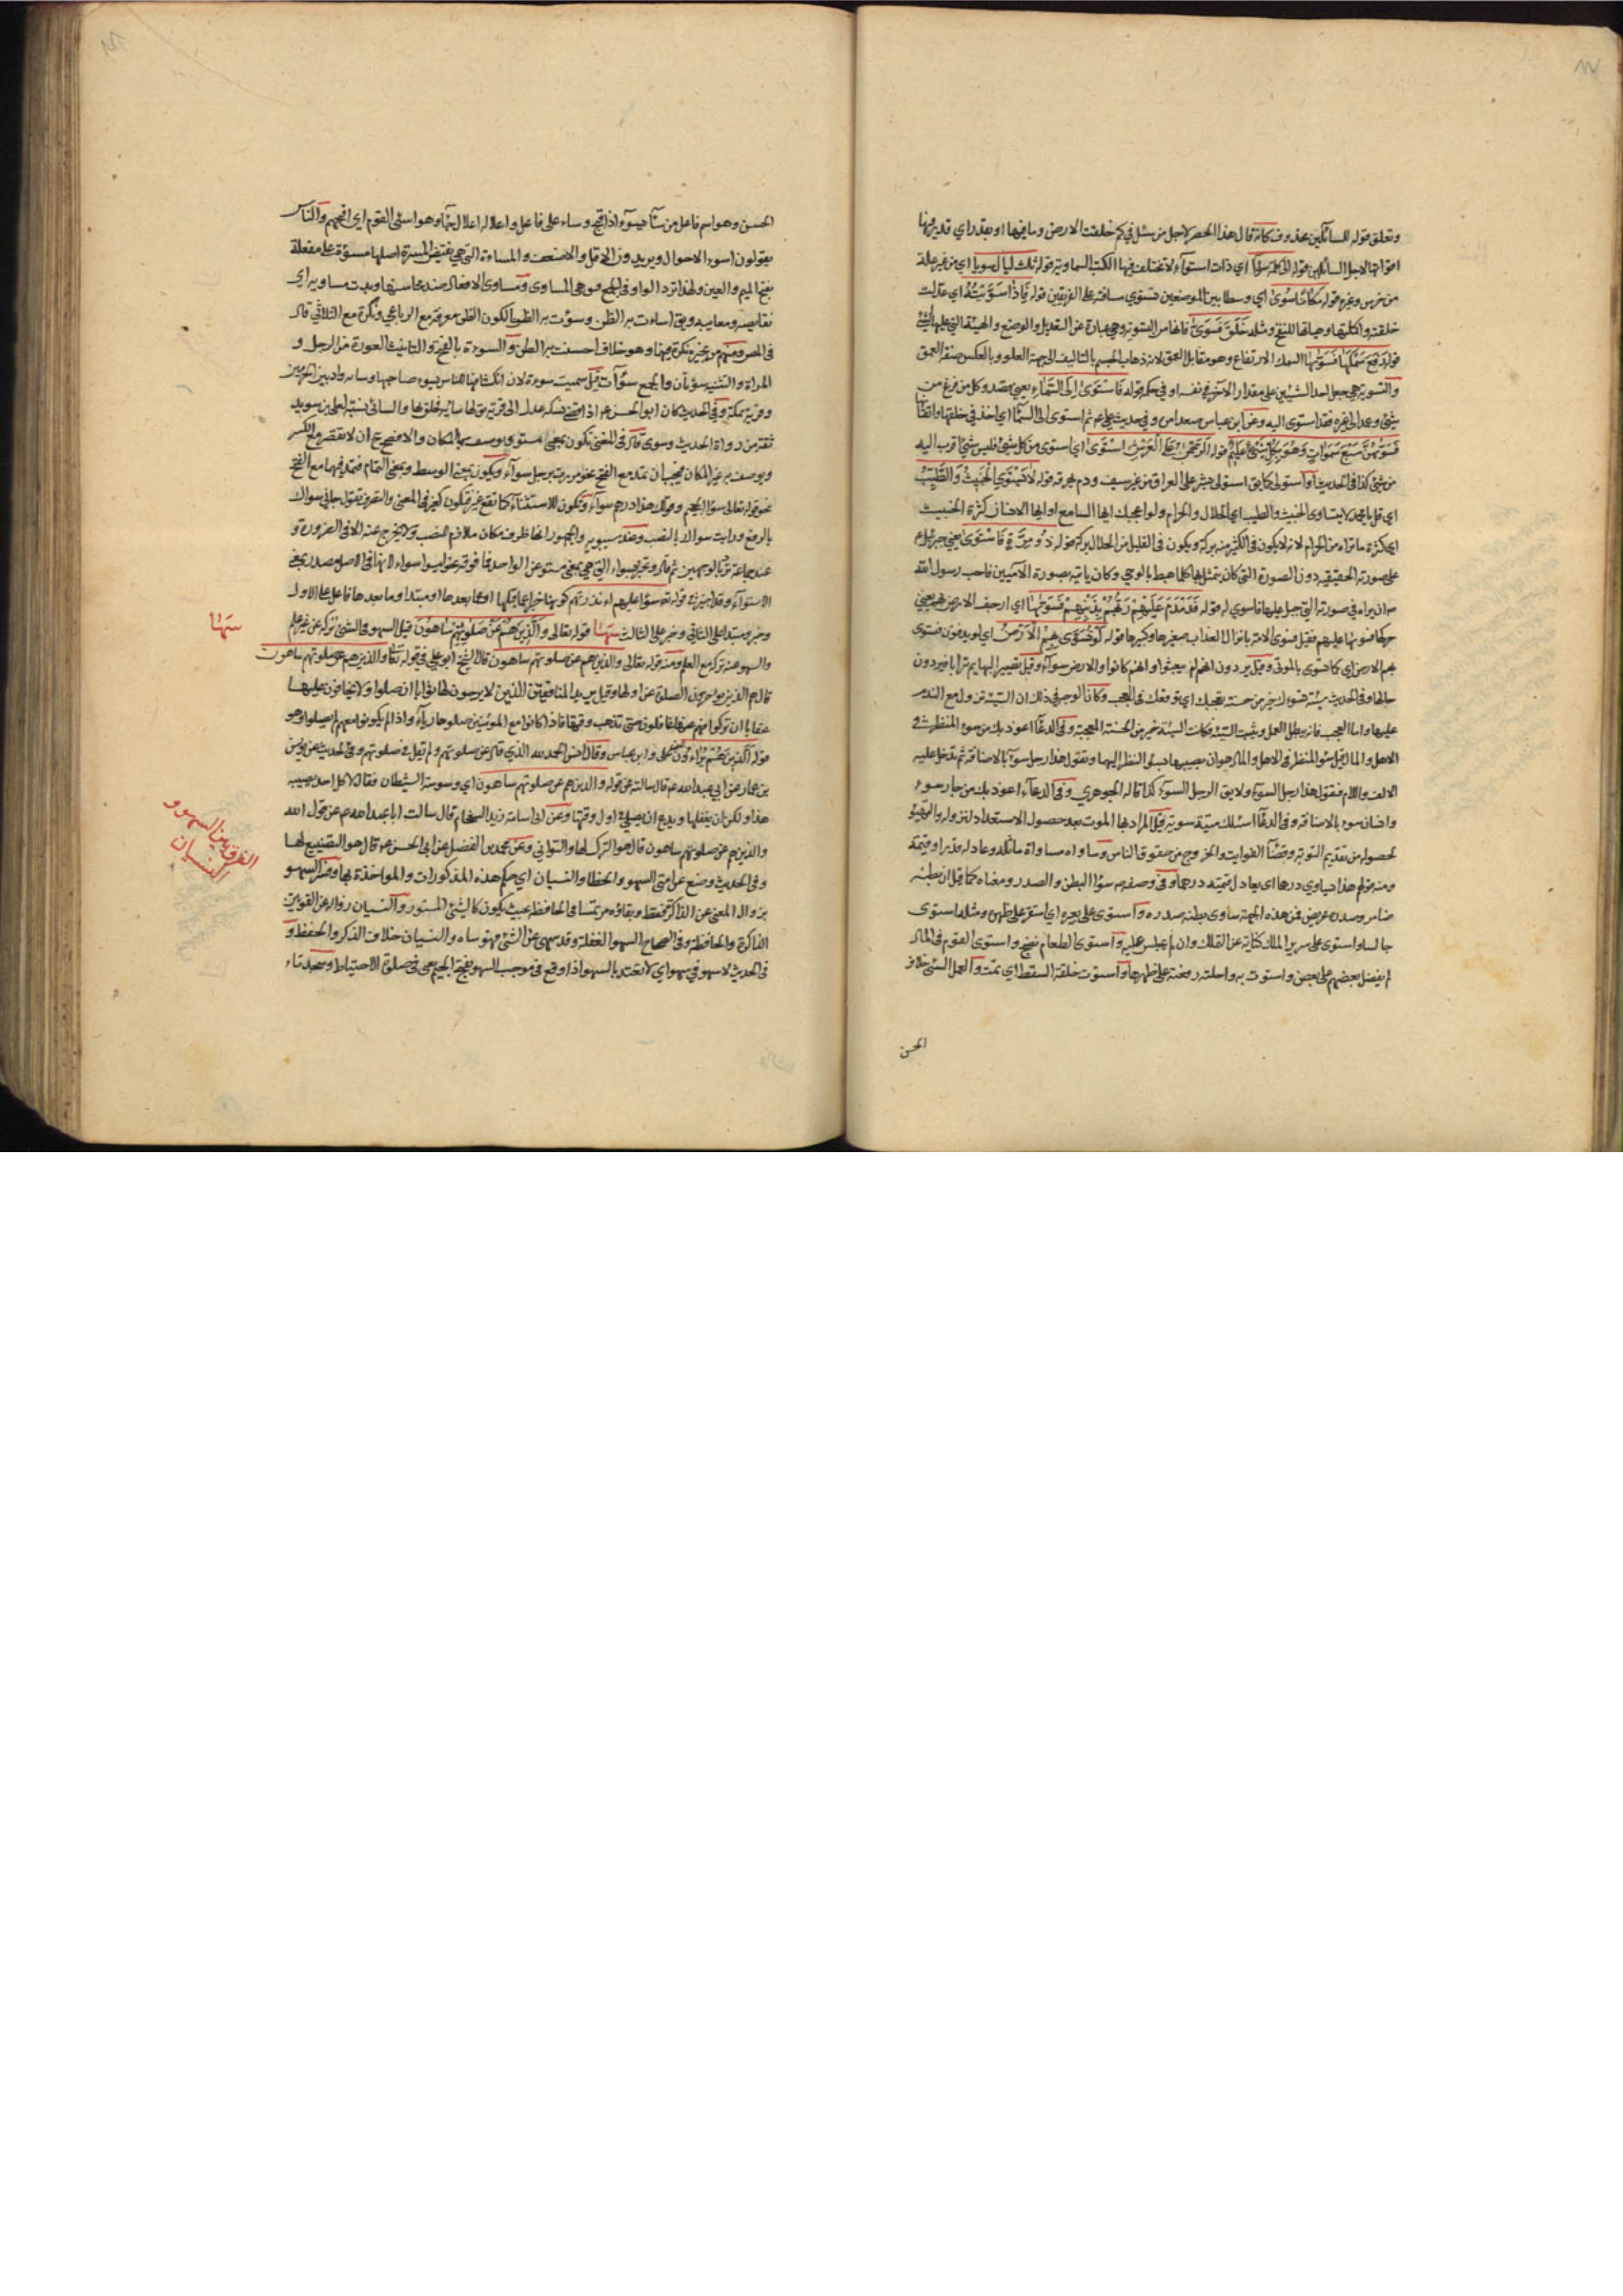 وتعلق قوله للسائلين بمحذوف كانه قال هذا الحصر لاجل من سئل في كم خلقت الارض وما فيها او بقدر اي قدر فيها
اقواتها لاجل السائلين قوله الى كلمة سواء اي ذات استواء لا تختلف فيها الكتب السماوية قوله ثلث ليال سويا اي من غير علة
من خرس وغيره قوله مكانا سوى اي وسطا بين الموضعين تستوي مسافته على الفريقين قوله فاذا سويته اي عدلت
خلقته واكملتها وهياتها للنفخ ومثله خلق فسوى فانها من التسوية وهي عبارة عن التعديل والوضع والهيئة التي عليها الشئ
قوله رفع سمكها فسويها السمك الارتفاع وهو مقابل العمق لانه ذهاب الجسم بالتاليف الى جهة العلو وبالعكس صفة العمق
والتسوية هي جعل احد الشيئين على مقدار الآخر في نفسه او في حكمه قوله فاستوى الى السماء يعني قصد وكل من فرغ من
شئ وعمد الى غيره فقد استوى اليه وعن ابن عباس صعد امره وفي حديث علي ع ثم استوى الى السماء اي اخذ في خلقها واتقانها
فسويهن سبع سموات وهو بكل شئ عليم قوله الرحمن على العرش استوى اي استوى من كل شئ فليس شئ اقرب اليه
من شئ كذا في الحديث او استولى كما يق استولى بشر على العراق من غير سيف ودم مهرق قوله لا يستوي الخبيث والطيب
اي قل يا محمد لا يتساوى الخبيث والطيب اي الحلال والحرام ولو اعجبك ايها السامع او ايها الانسان كثرة الخبيث
اي كثرة ما تراه من الحرام لانه لا يكون في الكثير منه بركة ويكون في القليل من الحلال بركة قوله ذو مرة فاستوى يعني جبرئيل ع
على صورته الحقيقية دون الصورة التي كان يتمثل بها كلما هبط بالوحي وكان ياتيه بصورة الآدميين فاحب رسول الله
ص ان يراه في صورته التي جبل عليها فاستوى له قوله فدمدم عليهم ربهم بذنبهم فسويها اي ارجف الارض بهم يعني
حركها فسويها عليهم فقيل فسوى الامة بانزال العذاب صغيرها وكبيرها قوله لو تسوى بهم الارض اي لو يدفنون فتسوى
بهم الارض اي كما تسوى بالموتى وقيل يودون انهم لم يبعثوا او انهم كانوا والارض سواء وقيل تصير البهايم ترابا فيودون
حالها وفي الحديث سيئة تسوءك خير من حسنة تعجبك اي توقعك في العجب وكان الوجه في ذلك ان السيئة تزول مع الندم
عليها واما العجب فانه يبطل العمل ويثبت السيئة فكانت السيئة خير من الحسنة المعجبة وفي الدعاء اعوذ بك من سوء المنظر في
الاهل والمال قيل سوء المنظر في الاهل والمال هو ان يصيبهما ما يسوء النظر اليهما وتقول هذا رجل سوء بالاضافة ثم تدخل عليه
الالف واللام فتقول هذا رجل السوء ولا يق الرجل السوء كذا قاله الجوهري وفي الدعاء اعوذ بك من جار سوء
وانسان سوء بالاضافة وفي الدعاء اسئلك ميتة سوية قيل المراد بها الموت بعد حصول الاستعداد لنزوله والتهيؤ
لحصوله من تقديم التوبة وقضاء الفوايت والخروج من حقوق الناس وساواه مساواة ماثله وعادله قدرا وقيمة
ومنه قولهم هذا يساوي درهما اي يعادل قيمته درهما وفي وصفه ص سواء البطن والصدر ومعناه كما قيل ان بطنه
ضامر وصدره عريض فمن هذه الجهة ساوى بطنه صدره واستوى على بعيره اي استقر على ظهره ومثله استوى
جالسا واستوى على سرير الملك كناية عن التملك وان لم يجلس عليه واستوى الطعام نضج واستوى القوم في المال
لم يفضل بعضهم على بعض واستوت به راحلته رفعته على ظهرها واستوت خلقة السقط اي تمت والعمل السئ خلاف
الحسن
الحسن وهو اسم فاعل من ساء يسوء اذا قبح وساء على فاعل واعلاله اعلال جاء وهو اسوء القوم اي اقبحهم والناس
يقولون اسوء الاحوال ويريدون الاقل والاضعف والمساءة التي هي نقيض المسرة اصلها مسوءة على مفعلة
بفتح الميم والعين ولهذا ترد الواو في الجمع فيق هي المساوي ومساوي الافعال ضد محاسنها وبدت مساويه اي
نقايصه ومعايبه ويق اساءت به الظن وسؤت به الظن بالكون الظن معرفة مع الرباعي ونكرة مع الثلاثي قال
في المص ومنهم من يجيزه نكرة فيهما وهو خلاف احسنت به الظن والسوءة بالفتح والتانيث العورة من الرجل و
المراة والتثنية سوءتان والجمع سوءات قيل سميت سوءة لان انكشافها للناس يسوء صاحبها وسايه واد بين الحرمين
وقرية بمكة وفي الحديث كان ابو الحسن ع اذا قضى نسكه عدل الى قرية يق لها سايه فحلق بها والسائي نسبة لعلي بن سويد
ثقة من رواة الحديث وسوى قال في المغني تكون بمعنى مستو ويوصف به المكان والافصح ح ان لا تقصر مع الكسر
ويوصف به غير المكان فيجب ان تمد مع الفتح نحو مررت برجل سواء وتكون بمعنى الوسط وبمعنى التمام فتمد فيهما مع الفتح
نحو قوله تعالى سواء الجحيم وقولك هذا درهم سواء وتكون للاستثناء كما تقع غير فتكون كغير في المعنى والتصرف تقول جاءني سواك
بالرفع ورايت سواك بالنصب وعند سيبويه والجمهور انها ظرف مكان ملازم للنصب ولا يخرج عنه الا في الضرورة و
عند جماعة ترد بالوجهين ثم قال وتخبر بسواء التي هي بمعنى مستو عن الواحد فما فوقه نحو ليسوا سواء لانها في الاصل مصدر بمعنى
الاستواء وقد اجيز في قوله تعالى سواء عليهم ءانذرتهم كونها خبرا عما قبلها او عما بعدها او مبتدا وما بعدها فاعل على الاول
وخبر ومبتدا على الثاني وخبر على الثالث سها قوله تعالى والذين هم عن صلوتهم ساهون قيل السهو في الشئ تركه عن غير علم
والسهو عنه تركه مع العلم ومنه قوله تعالى والذين هم عن صلوتهم ساهون قال الشيخ ابو علي في قوله تعالى والذين هم عن صلوتهم ساهون
قال هم الذين يؤخرون الصلوة عن اوقاتها وقيل يريد المنافقين الذين لا يرجون لها ثوابا ان صلوا ولا يخافون عليها
عقابا ان تركوا فهم عنها غافلون حتى تذهب وقتها فاذا كانوا مع المؤمنين صلوها رياء واذا لم يكونوا معهم لم يصلوا وهو
قوله الذين هم يراءون عن علي وابن عباس وقال انس الحمد لله الذي قال عن صلوتهم ولم يقل في صلوتهم وفي الحديث عن يونس
بن عمار عن ابي عبد الله ع قال سالته عن قوله والذين هم عن صلوتهم ساهون اي وسوسة الشيطان فقال لا كل احد يصيبه
هذا ولكن ان يغفلها ويدع ان يصلي في اول وقتها وعن ابي اسامة زيد الشحام قال سالت ابا عبد الله ع عن قول الله
والذين هم عن صلوتهم ساهون قال هو الترك لها والتواني وعن محمد بن الفضيل عن ابي الحسن ع قال هو التضييع لها
وفي الحديث وضع عن امتي السهو والخطا والنسيان اي حكم هذه المذكورات والمؤاخذة بها وفسر السهو
بزوال المعنى عن الذاكرة فقط وبقاؤه مرتسما في الحافظة بحيث يكون كالشئ المستور والنسيان زواله عن القوتين
الذاكرة والحافظة وفي الصحاح السهو الغفلة وقد سهى عن الشئ فهو ساه والنسيان خلاف الذكر والحفظ و
في الحديث لا سهو في سهو اي لا تعتد بالسهو اذا وقع في موجب السهو بفتح الجيم يعني في صلوة الاحتياط وسجدتاء
سها
الفرق بين السهو و
النسيان